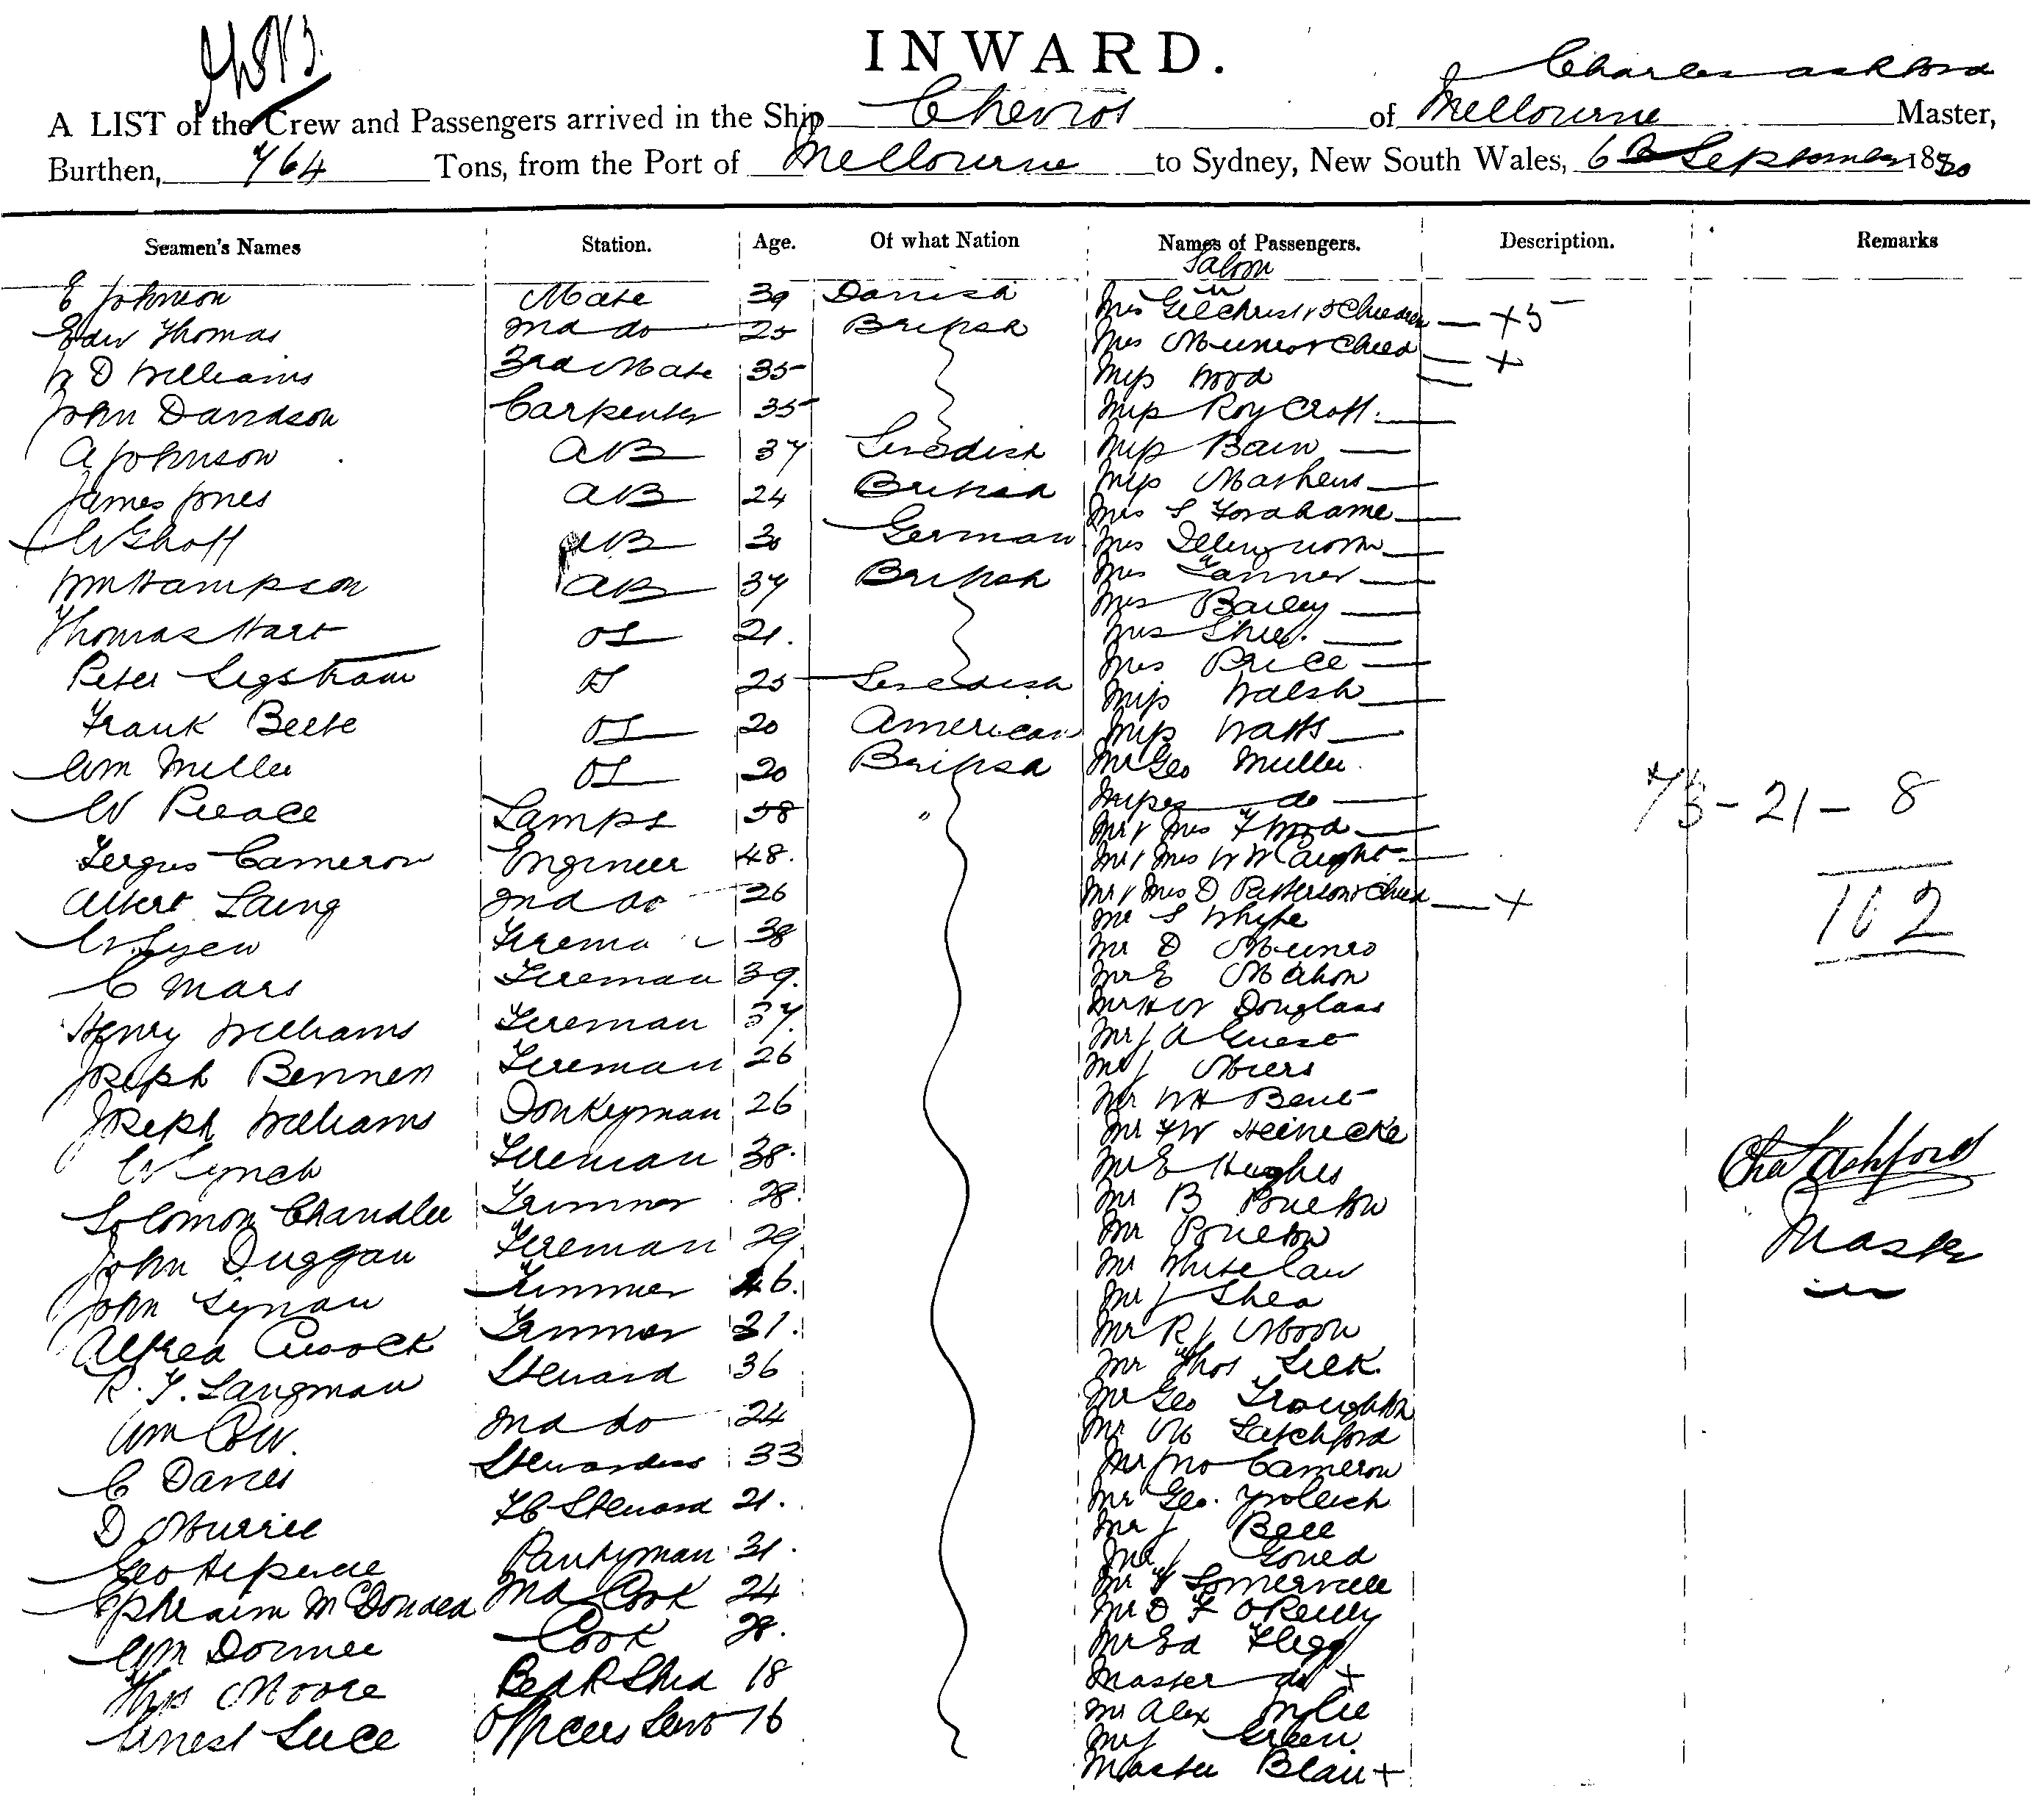 INWARD.
Charles Ashford
A LIST of the Crew and Passengers arrived in the Ship Cheviot of Melbourne Master,
Burthen, 764 Tons, from the Port of Melbourne to Sydney, New South Wales, 6 September 1880
Seamen's Names Station. Age. Of what Nation Names of Passengers. Description. Remarks
Saloon
E Johnson Mate 39 Danish Mrs Gilchrist & 5 Children — + 5
Edw Thomas 2nd do 25 British Mrs Munro & Child — +
W D Williams 3rd Mate 35 Miss Wood —
John Davidson Carpenter 35 Miss Roycroft —
A Johnson AB 37 Swedish Miss Bain —
James Jones AB 24 British Miss Mathews —
AB 30 German Mrs S —
Wm Hampson AB 37 British Mrs Illingworth —
Thomas Hart OS 21. Mrs Tanner —
Peter Segstram OS 25 Swedish Mrs Bailey —
Frank Beebe OS 20 American Mrs Shiel. —
Wm Miller OS 20 British Mrs Price —
W Pearce Lamps 58 " Miss Walsh —
Fergus Cameron Engineer 48. Miss Watts —
Albert Laing 2nd do 26 Mr Geo Miller
W. Fireman 38 Misses do —
C Mars Fireman 39. Mr & Mrs F Wood —
Henry Williams Fireman 37. Mr & Mrs W W —
Joseph Bennett Fireman 26 Mr & Mrs D Patterson & Child — +
Joseph Williams Donkeyman 26 Mr S Whyte
W Lynch Fireman 38. Mr D Munro
Solomon Chandler Trimmer 28. Mr E Mahon
John Duggan Fireman 29 Mr H W Douglass
John Lynau Trimmer 26. Mr J A Guest
Alfred Cusock Trimmer 21. Mr J Miers
R. T. Langman Steward 36 Mr W H Bent
Wm Cow. 2nd do 24 Mr F W Heinecke
C Davies Stewardess 33 Mr E Hughes
D Murrill FC Steward 21. Mr B Poulton
Geo Pantryman 31. Mr Poulton
Ephraim McDonald 2nd Cook 24 Mr Whitelaw
Wm Cook 28. Mr J Shea
Thos Moore 18 Mr R J Moon
Ernest Luce Officers Servt 16 Mr Thos Silk.
Mr Geo Troughton
Mr M Latchford
Mr Jno Cameron
Mr Geo.
Mr J Bell
Mr J Gould
Mr Somerville
Mr D F O'Reilly
Mr Ed Flegg
Master do +
Mr Alex Wylie
Mr J Green
Master Blair +
73 - 21 - 8
102
Chas Ashford
Master